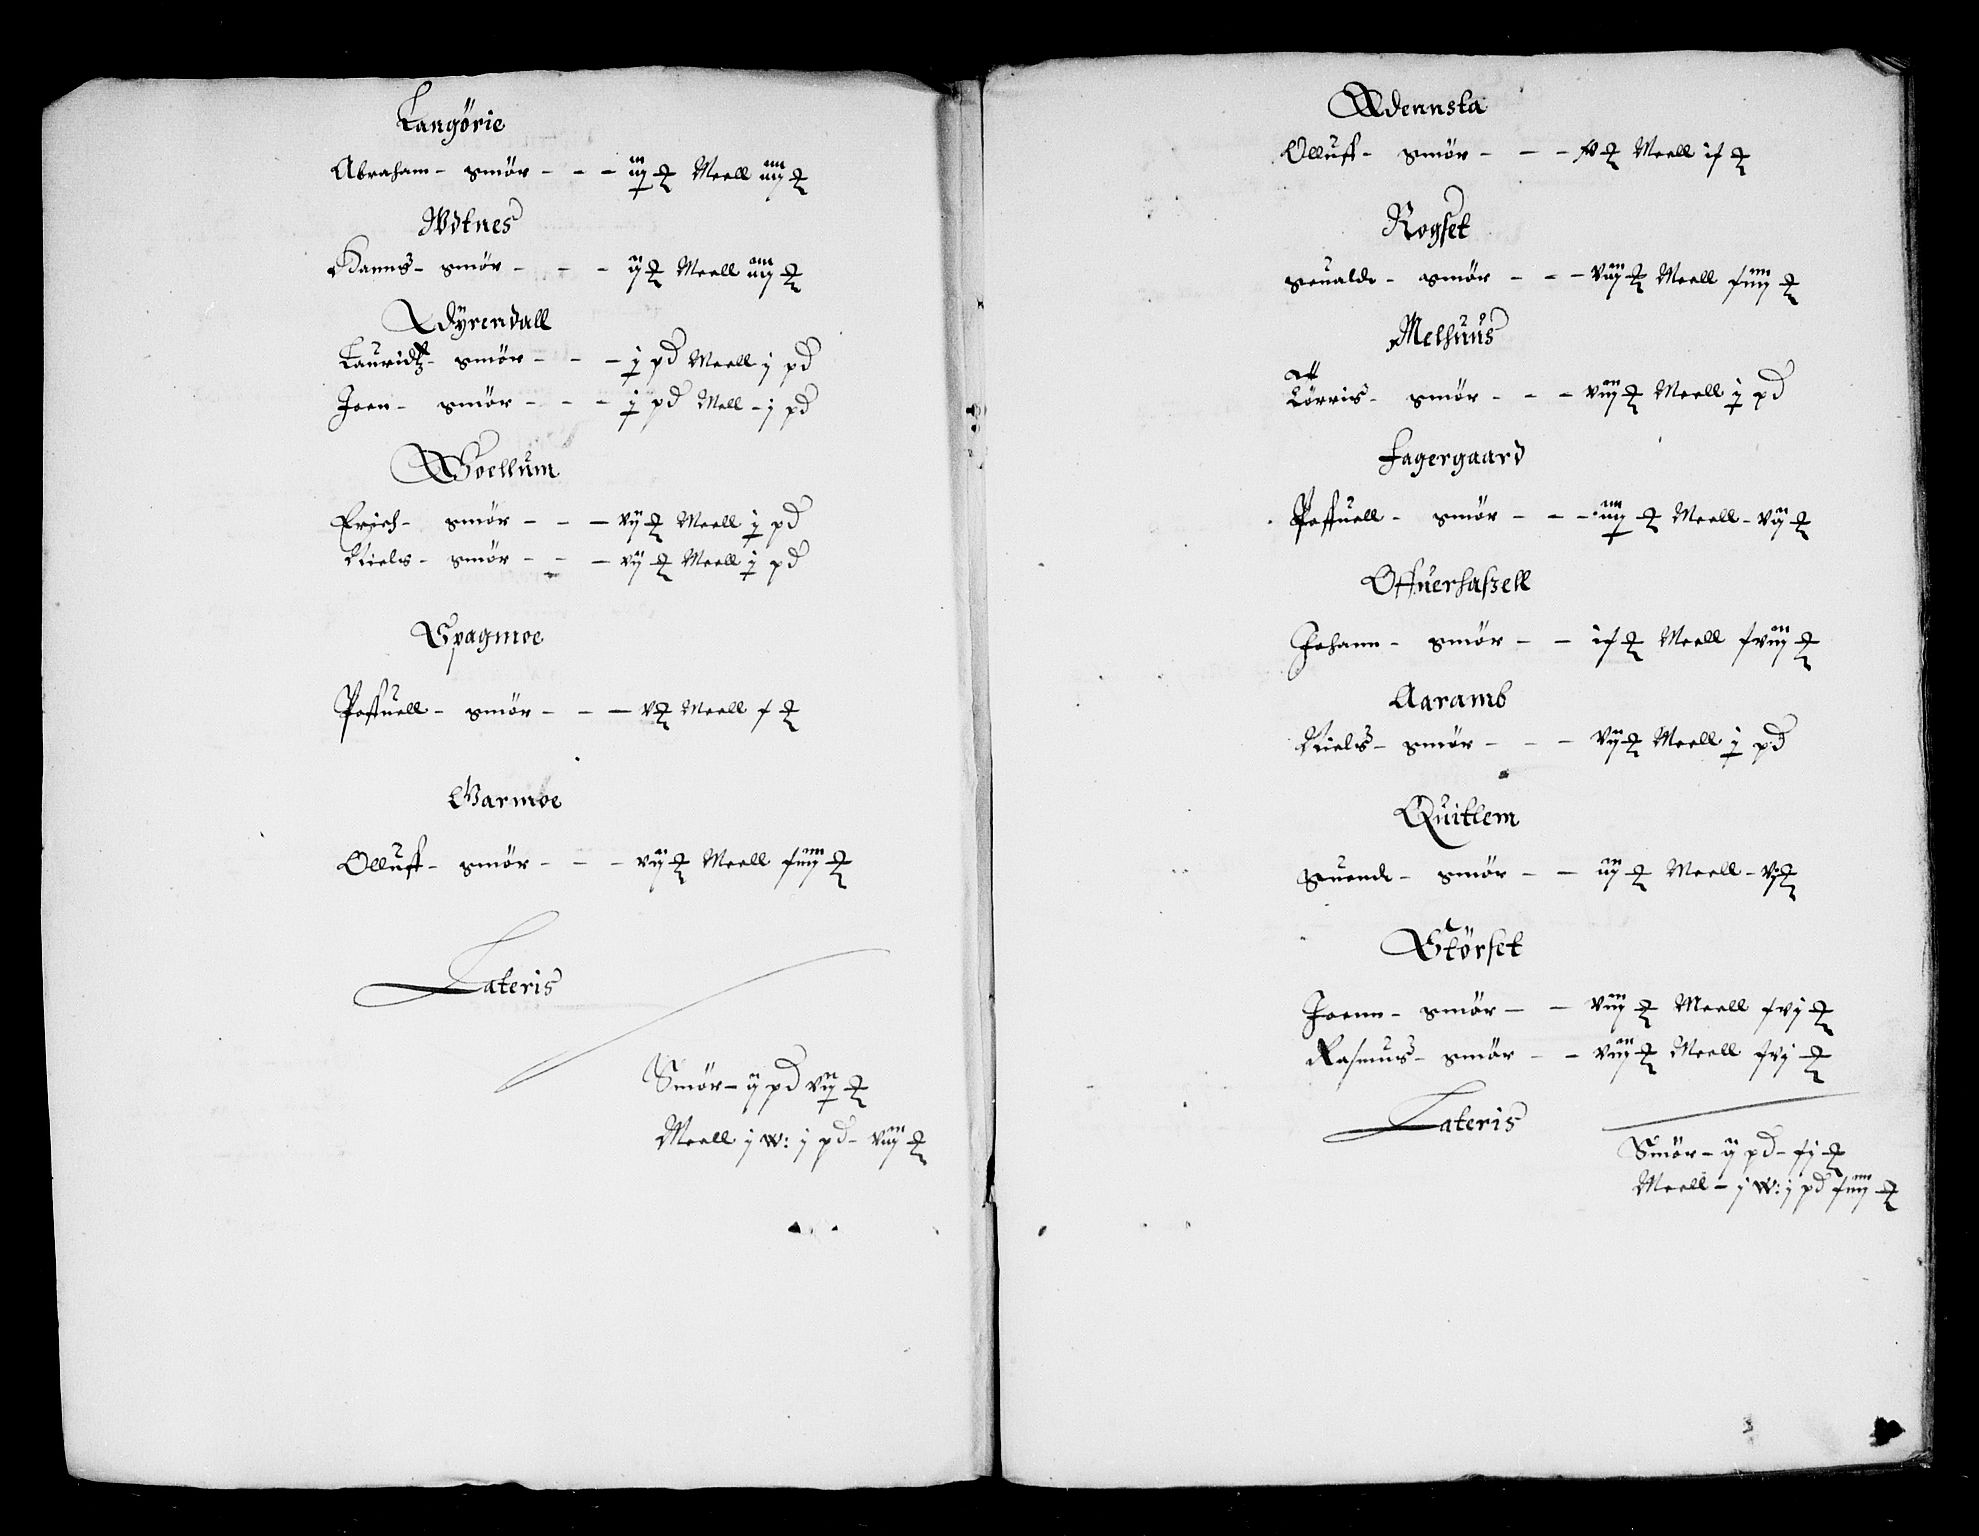 Langörie
Abraham – smör – – – iij ℔ Meell iiij ℔
Wdtnes
Hanns – smör – – – ij ℔ Meell iiij ℔
Dÿrendall
Lauridtz – smör – – – j pd Meell j pd
Joen – smör – – – j pd Mell – j pd
Woellum
Erich – smör – – – vij ℔ Meell j pd
Niels – smör – – – vij ℔ Meell j pd
Spagmoe
Poffuell – smör – – – v ℔ Meell x ℔
Warmoe
Olluff – smör – – – vij ℔ Meell xiiij ℔
Lateris
Smör – ij pd vij ℔
Meell j w: j pd – viij ℔
Adennsta
Olluff – smör – – – xv ℔ Meell ix ℔
Rogset
Seualdt – smör – – – viij ℔ Meell xiiij ℔
Melhuus
aff
Lörris – smör – – – viij ℔ Meell j pd
Fagergaard
Poffuell – smör – – – iiij ℔ Meell – vij ℔
Offuerhaßell
Johann – smör – – ix ℔ Meell xviij ℔
Aaramb
Niels – smör – – – vij ℔ Meell j pd
Quitlem
Suendt – smör – – iij ℔ Meell – vj ℔
Störset
Joenn – smör – – viij ℔ Meell xvj ℔
Rasmus – smör – – viij ℔ Meell xvj ℔
Lateris
Smör – ij pd – xj ℔
Meell – j w: j pd xiiij ℔